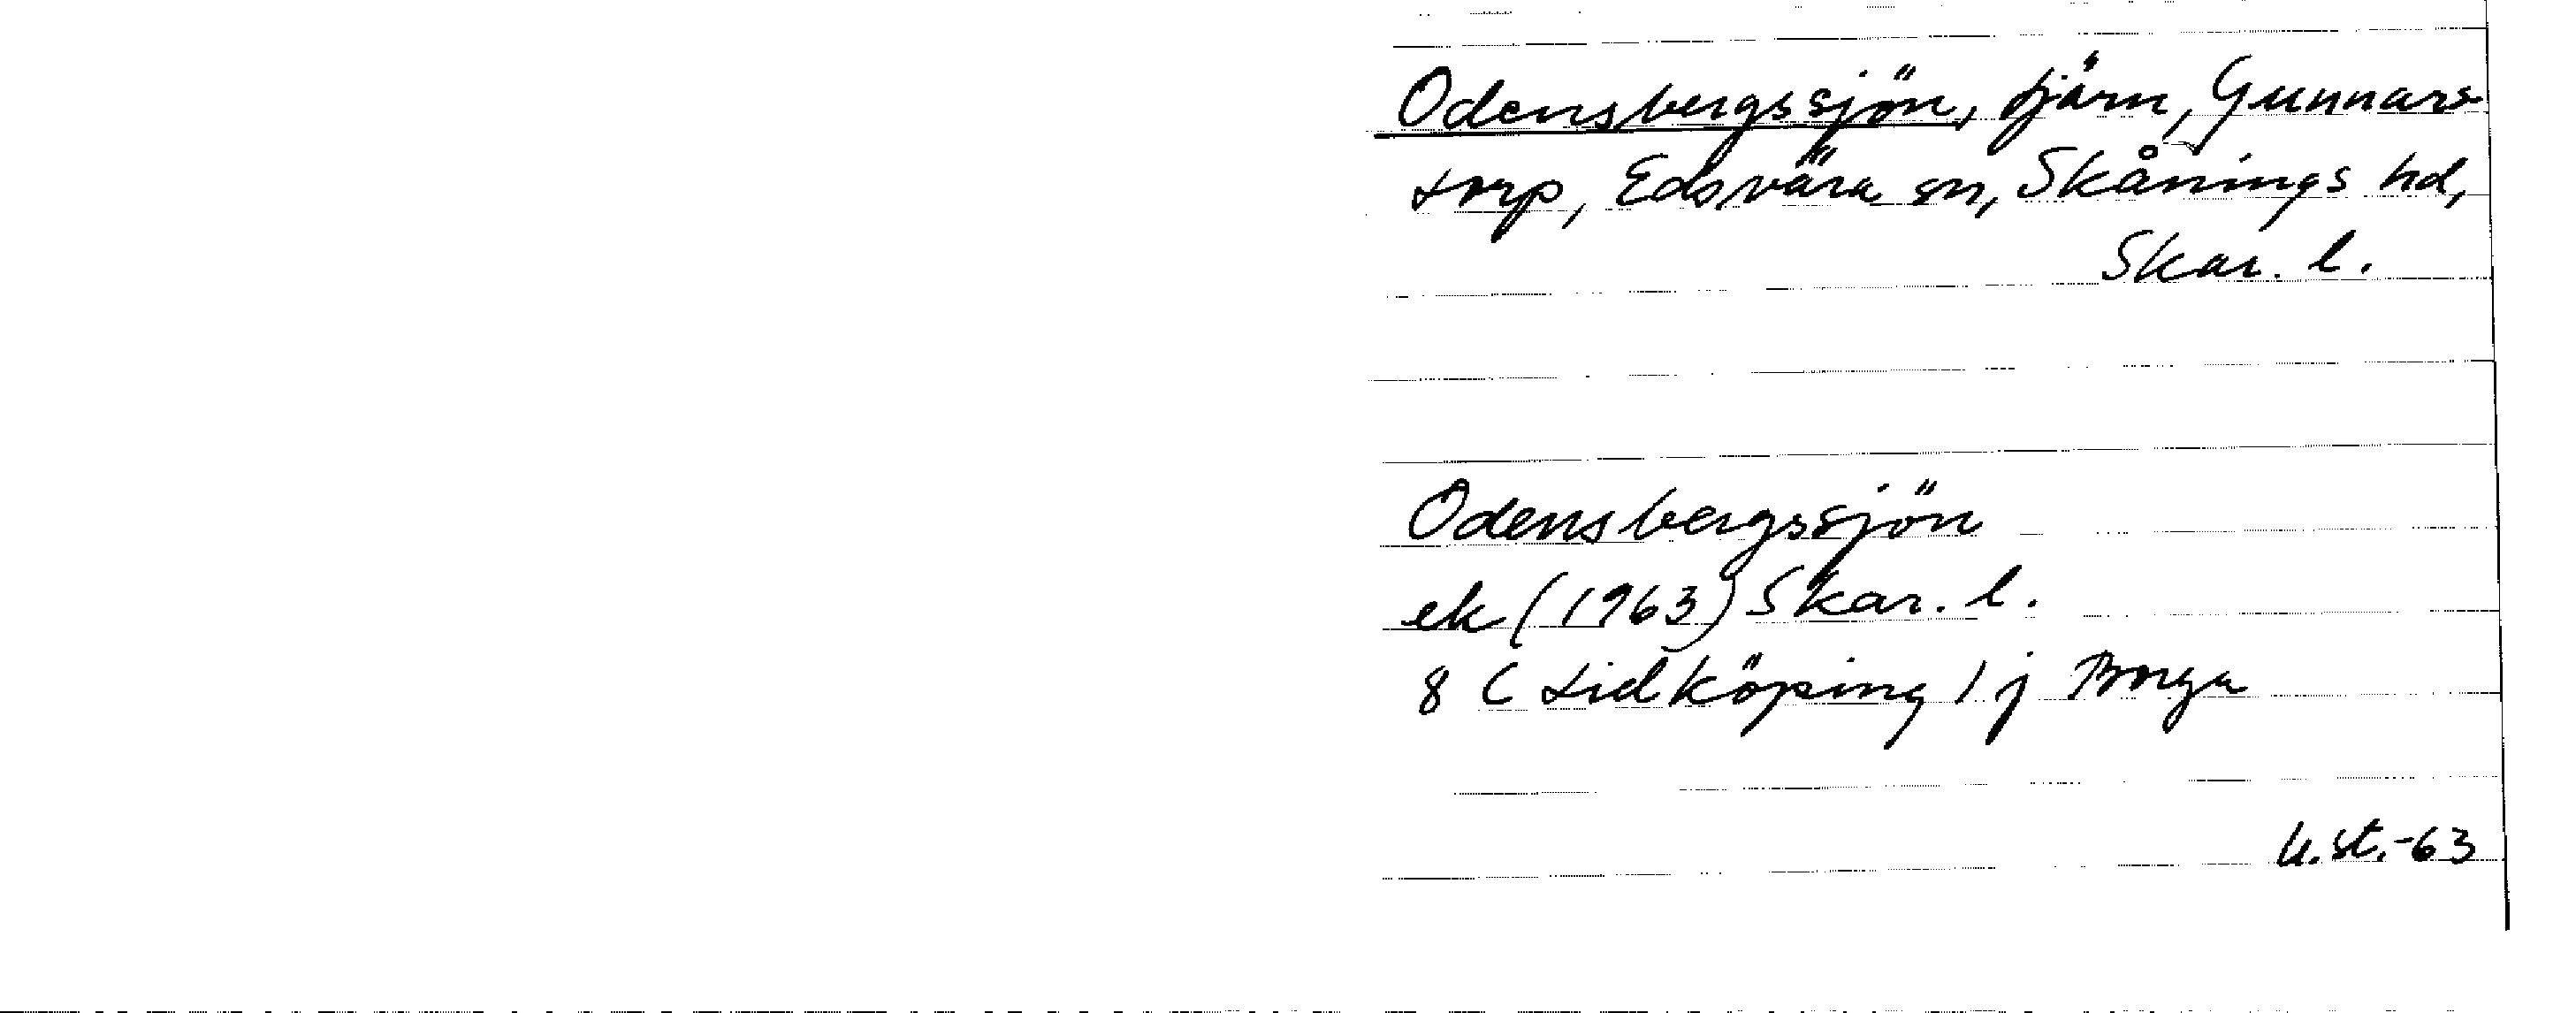 Odensbergssjön, tjärn, Gunnars
torp, Edsvära sn, Skånings hd,
Skar. l.
Odensbergssjön
ek (1963) Skar. l.
8 C Lidköping 1 j Borga
U.st.-63